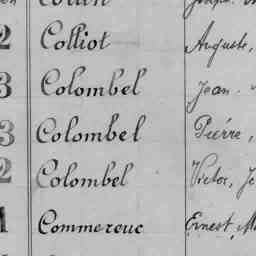 2 Colliot Auguste,
3 Colombel Jean
3 Colombel Piérre,
2 Colombel Victor, Je
1 Commereuc Ernest, Ma